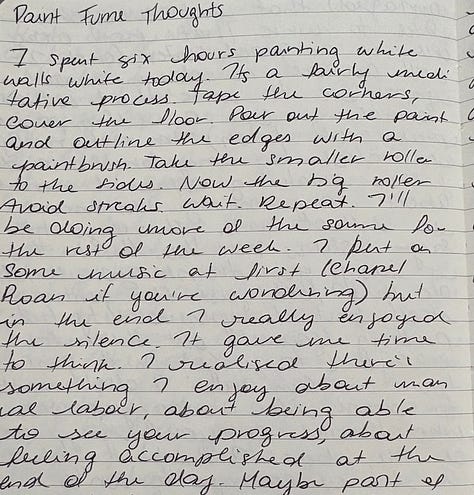 Paint Fume Thoughts
I spent six hours painting white
walls white today. Its a fairly medi
tative process. Tape the corners,
cover the floor. Pour out the paint
and outline the edges with a
paintbrush. Take the smaller roller
to the sides. Now the big roller
Avoid streaks. Wait. Repeat. I'll
be doing more of the same for
the rest of the week. I put on
some music at first (Chapel
Roan if you're wondering) but
in the end I really enjoyed
the silence. It gave me time
to think. I realised there's
something I enjoy about man
ual labour, about being able
to see your progress, about
feeling accomplished at the
end of the day. Maybe part of